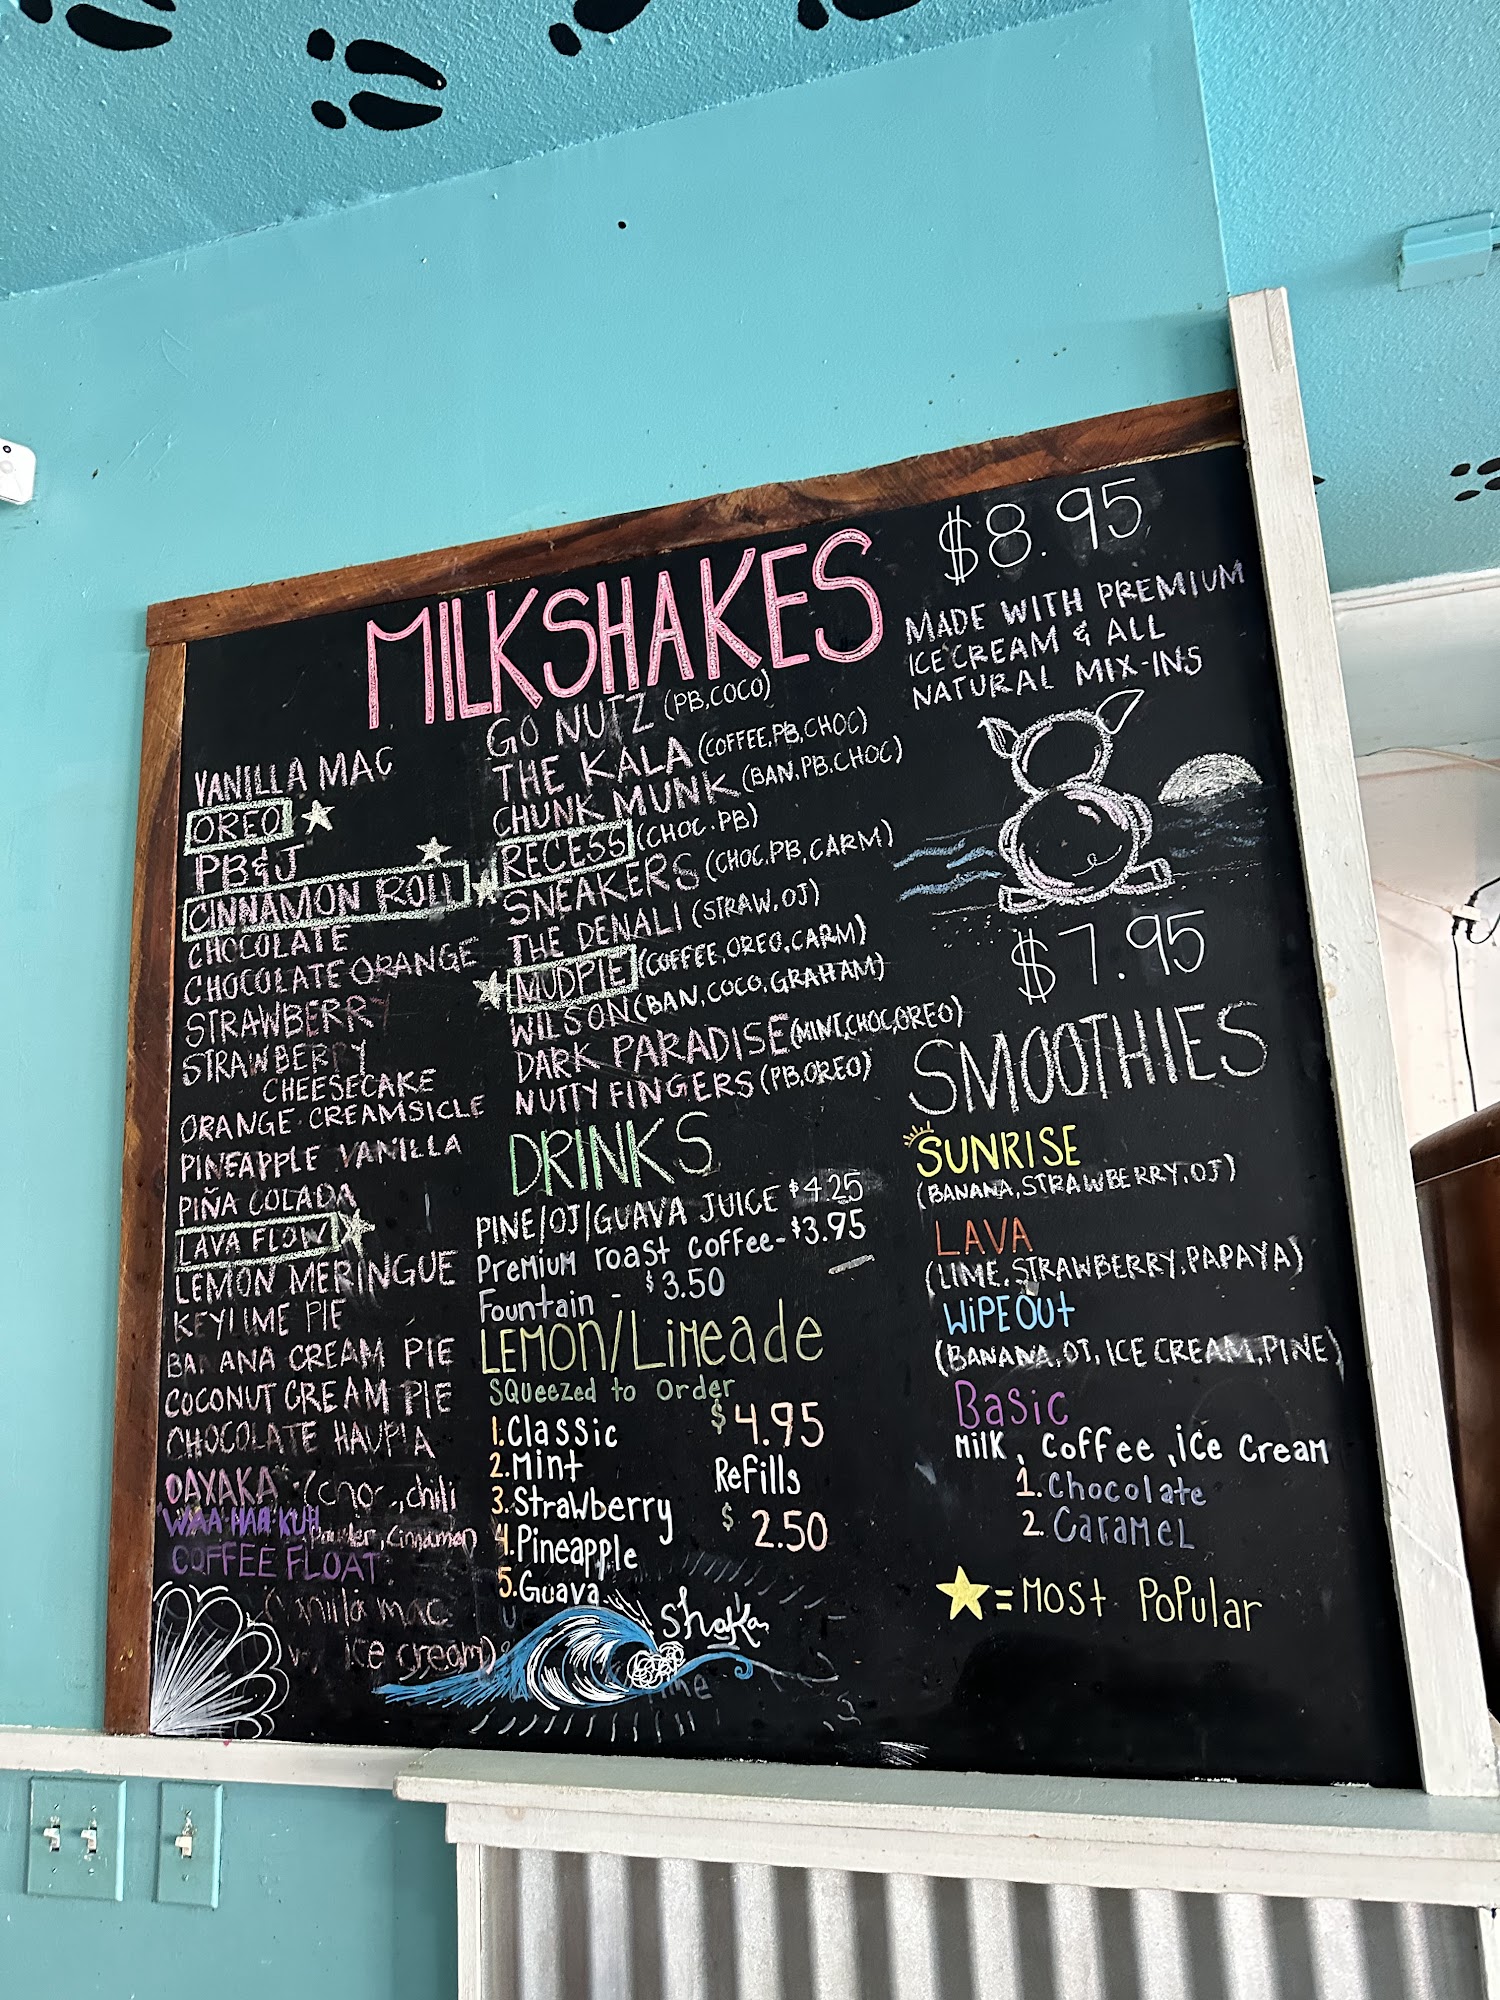 MILKSHAKES
$8.95
MADE WITH PREMIUM
ICE CREAM & ALL
NATURAL MIX-INS
VANILLA MAC
OREO
PB&J
CINNAMON ROLL
CHOCOLATE
CHOCOLATE ORANGE
STRAWBERRY
STRAWBERRY
CHEESECAKE
ORANGE CREAMSICLE
PINEAPPLE VANILLA
PIÑA COLADA
LAVA FLOW
LEMON MERINGUE
KEYLIME PIE
BANANA CREAM PIE
COCONUT CREAM PIE
CHOCOLATE HAUPIA
OAXAKA chili
WAA HAA KUH Powder, Cinnamon
COFFEE FLOAT
mac
ice cream)
GO NUTZ (PB,COCO)
THE KALA (COFFEE,PB,CHOC)
CHUNK MUNK (BAN,PB,CHOC)
RECESS (CHOC.PB)
SNEAKERS (CHOC,PB,CARM)
THE DENALI (STRAW,OJ)
MUDPIE (COFFEE,OREO,CARM)
WILSON (BAN,COCO,GRAHAM)
DARK PARADISE (MINT,CHOC,OREO)
NUTTY FINGERS (PB,OREO)
DRINKS
PINE/OJ/GUAVA JUICE $4.25
Premium roast coffee- $3.95
Fountain - $3.50
LEMON/Limeade
Squeezed to order
1.Classic $4.95
2.Mint
3.Strawberry Refills
4.Pineapple $2.50
5.Guava
Shaka
$7.95
SMOOTHIES
SUNRISE
(BANANA,STRAWBERRY,OJ)
LAVA
(LIME,STRAWBERRY,PAPAYA)
WIPEOUT
(BANANA,OJ,ICE CREAM,PINE)
Basic
Milk, coffee, ice cream
1. Chocolate
2. Caramel
=Most Popular